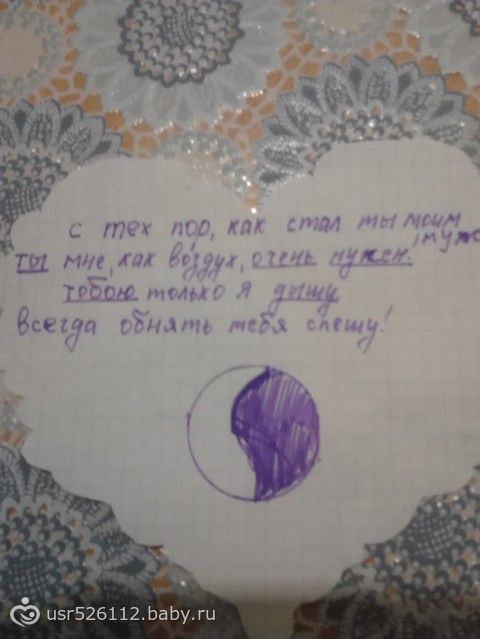 с тех пор, как стал ты моим
муж
ты мне, как воздух, очень нужен!
тобою только я дышу
всегда обнять тебя спешу!
usr526112.baby.ru